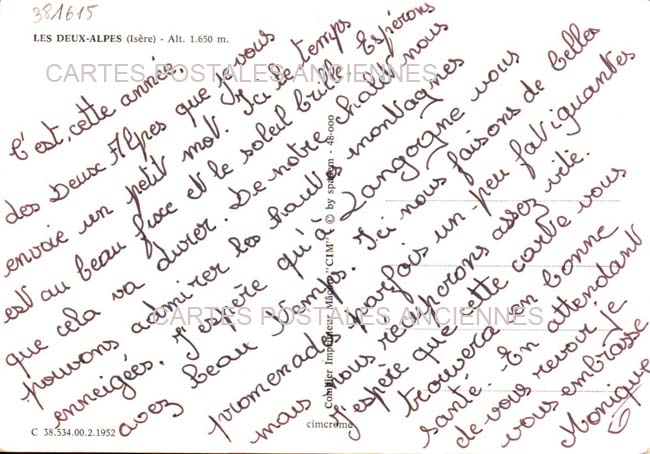 381615
LES DEUX-ALPES (Isère) - Alt. 1.650 m.
CARTES POSTALES ANCIENNES
C'est, cette année,
des Deux Alpes que je vous
envoie un petit mot. Ici le temps
est au beau fixe et le soleil brille. Espérons
que cela va durer. De notre chalet nous
pouvons admirer les hautes montagnes
enneigées. J'espère qu'à Langogne vous
avez beau temps. Ici nous faisons de belles
promenades parfois un peu fatiguantes
mais nous récupérons assez vite.
J'espère que cette carte vous
trouvera en bonne
santé. En attendant
de vous revoir je
vous embrasse
Monique
Combier Imprimeur Mâcon "CIM" © by spadem - 48-000
CARTES POSTALES ANCIENNES
C 38.534.00.2.1952
cimcrome